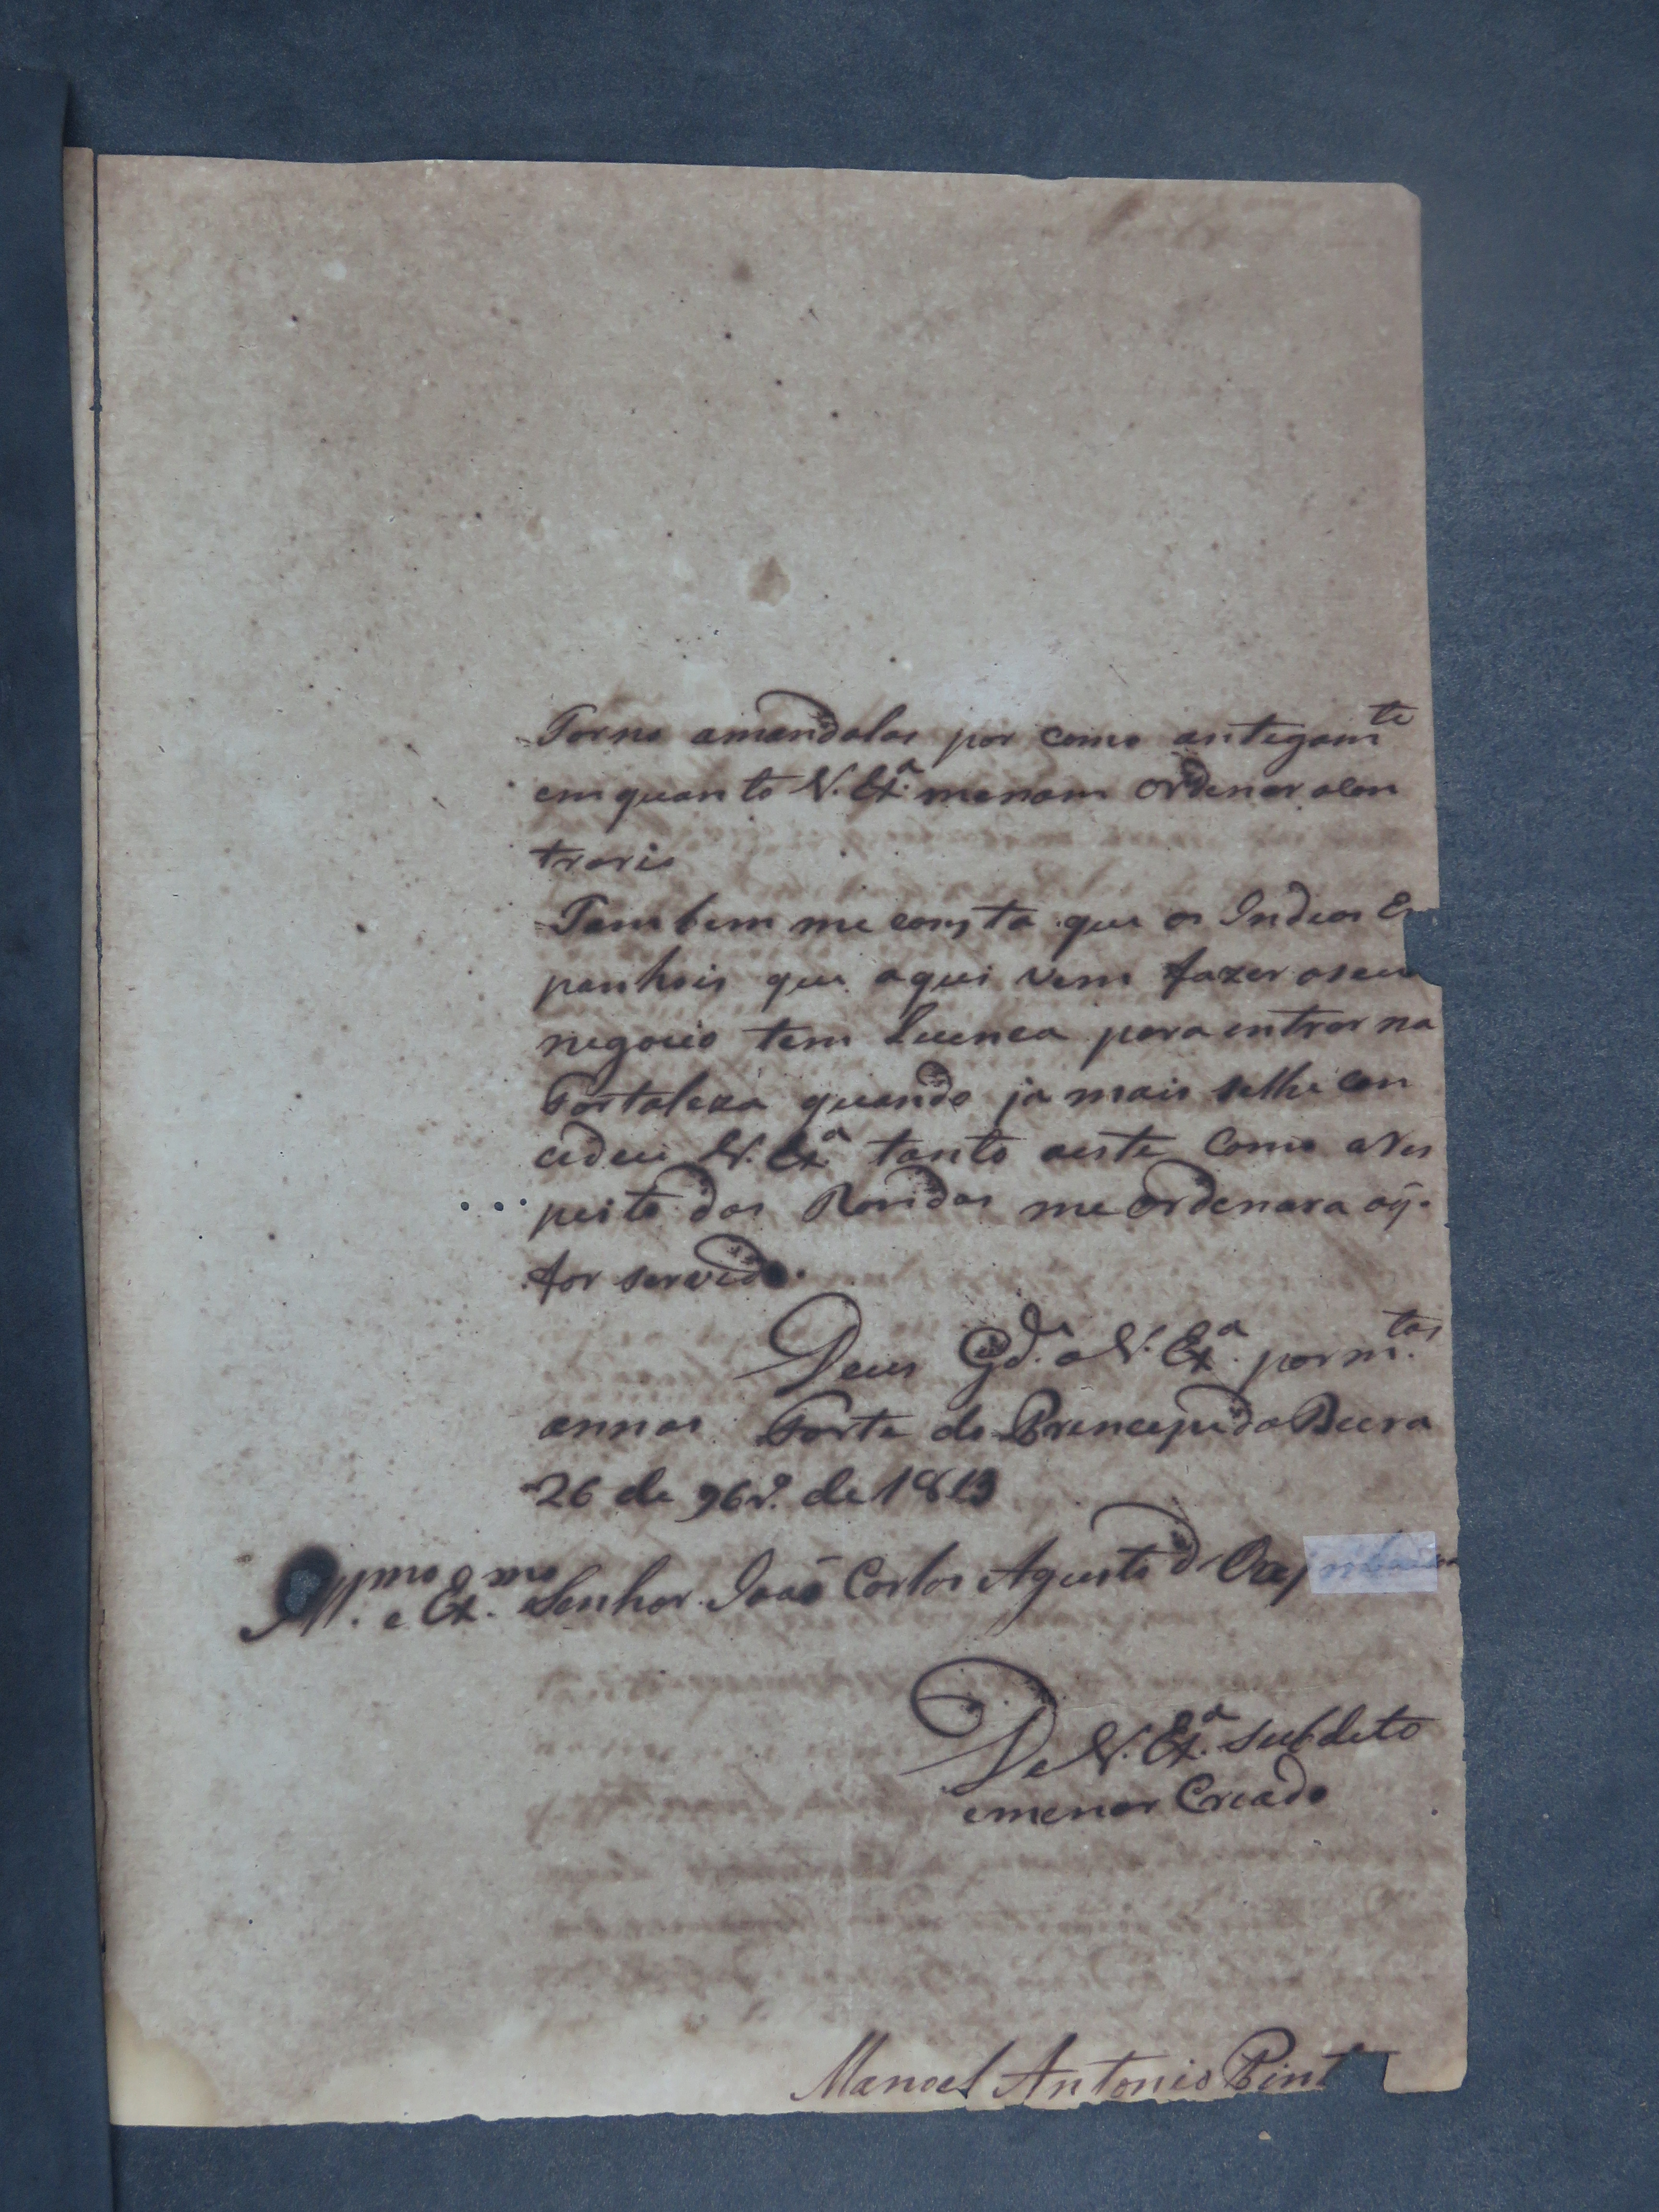 Torno amandalas por como antegam.te
emquanto V. Ex.a menam ordenar ocon
trario
Tambem me consta que os Indios Es
panhois que aqui vem fazer oseu
negocio tem Lucnca para entrar na
Fortaleza quando ja mais selhe con
cedeu V. Ex.a tanto aeste como aRes
peito das Rondas me ordenara oq̃.
for servido.
Deus G.de a V. Ex.a por m.tos
annos Forte do Princepe da Beira
26 de 9br.o de 1819
Ill.mo e Ex.mo Senhor João Carlos Agusto d'
De V. Ex.a subdito
emenor Criado
Manoel Antonio Pint